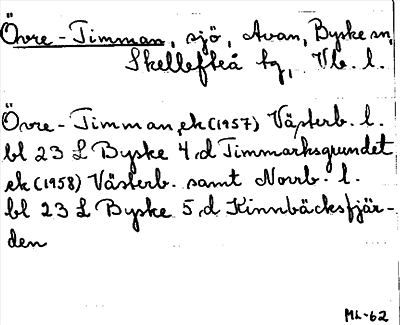 Övre-Timman, sjö, Avan, Byske sn,
Skellefteå tg, Vb. l.
Övre-Timman, ek (1957) Västerb. l.
bl 23 L Byske 4 d Timmarksgrundet
ek (1958) Västerb. samt Norrb. l.
bl 23 L Byske 5 d Kinnbäcksfjär-
den
ML-62